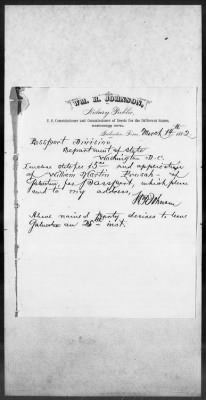 WM. R. JOHNSON,
Notary Public,
U. S. Commissioner and Commissioner of Deeds for the different States,
Galveston, Texas, March 19th 1882
Passport Division,
Department of State
Washington D.C.
Enclose state fee $5 and application
of William Martin of
Galveston, for Passport, which please
send to my address,
Johnson
Above named Party desires to leave
Galveston on 25th inst.